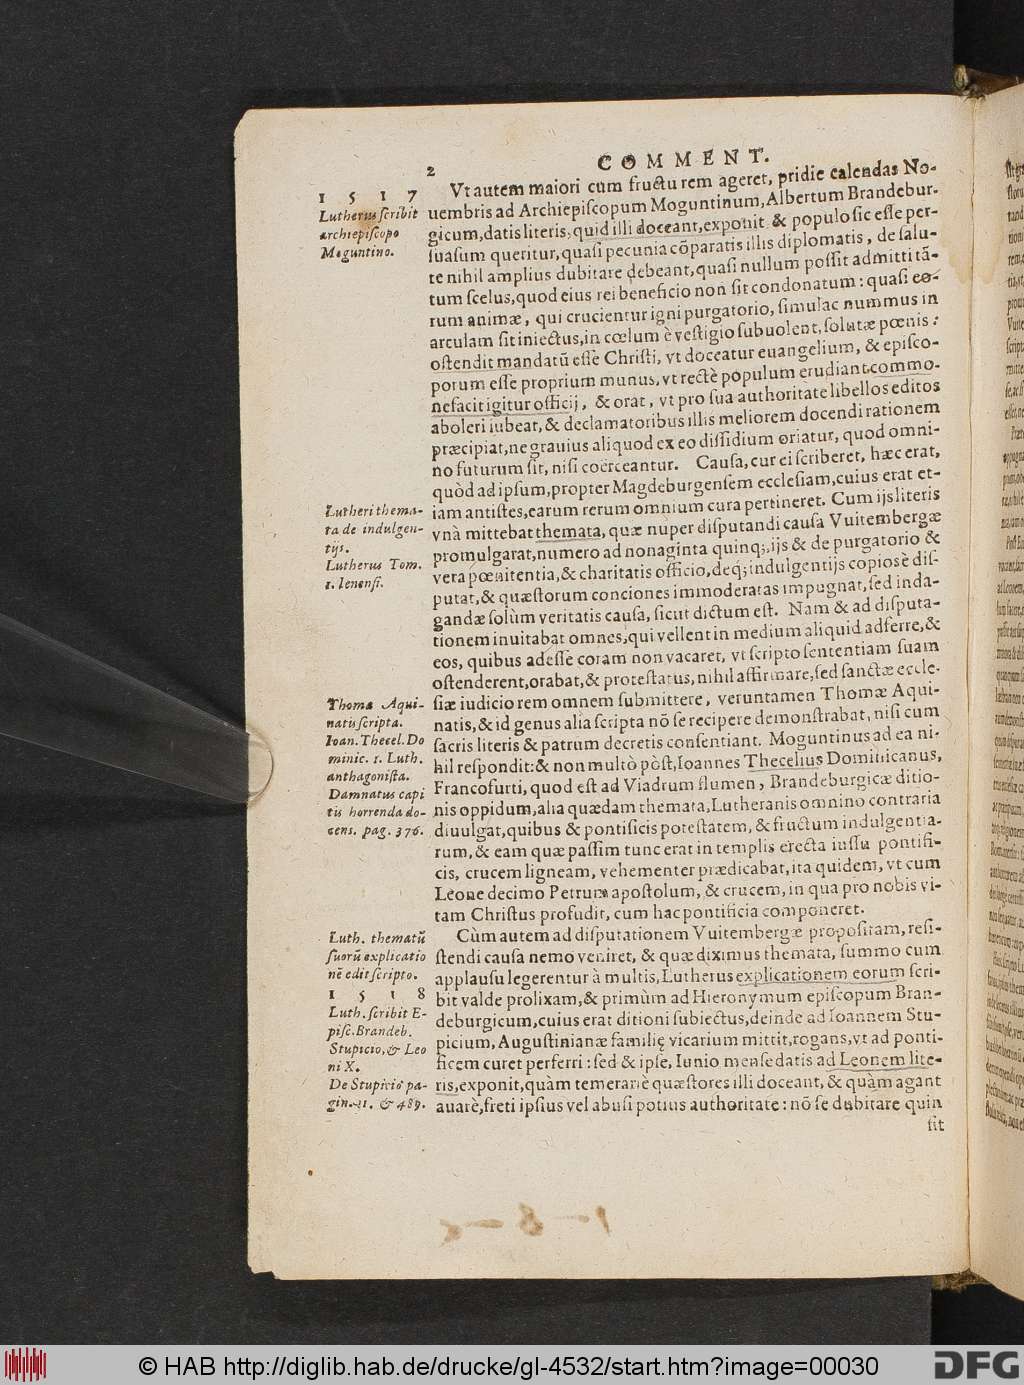 2
COMMENT.
1517
Lutherus ſcribit
archiepiſcopo
Moguntino.
Vt autem maiori cum fructu rem ageret, pridie calendas No-
uembris ad Archiepiſcopum Moguntinum, Albertum Brandebur-
gicum, datis literis, quid illi doceant, exponit & populo ſic eſſe per-
ſuaſum queritur, quaſi pecunia cōparatis illis diplomatis, de ſalu-
te nihil amplius dubitare debeant, quaſi nullum poſſit admitti tā-
tum ſcelus, quod eius rei beneficio non ſit condonatum: quaſi eo-
rum animæ, qui crucientur igni purgatorio, ſimulac nummus in
arculam ſit iniectus, in cœlum è veſtigio ſubuolent, ſolutæ pœnis:
oſtendit mandatū eſſe Chriſti, vt doceatur euangelium, & epiſco-
porum eſſe proprium munus, vt rectè populum erudiant. commo-
nefacit igitur officij, & orat, vt pro ſua authoritate libellos editos
aboleri iubeat, & declamatoribus illis meliorem docendi rationem
præcipiat, ne grauius aliquod ex eo diſſidium oriatur, quod omni-
no futurum ſit, niſi coërceantur. Cauſa, cur ei ſcriberet, hæc erat,
quòd ad ipſum, propter Magdeburgenſem eccleſiam, cuius erat et-
iam antiſtes, earum rerum omnium cura pertineret. Cum ijs literis
vnà mittebat themata, quæ nuper diſputandi cauſa Vuitembergæ
promulgarat, numero ad nonaginta quinq;, ijs & de purgatorio &
vera pœnitentia, & charitatis officio, deq; indulgentijs copiosè diſ-
putat, & quæſtorum conciones immoderatas impugnat, ſed inda-
gandæ ſolùm veritatis cauſa, ſicut dictum eſt. Nam & ad diſputa-
tionem inuitabat omnes, qui vellent in medium aliquid adferre, &
eos, quibus adeſſe coram non vacaret, vt ſcripto ſententiam ſuam
oſtenderent, orabat, & proteſtatus, nihil affirmare, ſed ſanctæ eccle-
ſiæ iudicio rem omnem ſubmittere, veruntamen Thomæ Aqui-
natis, & id genus alia ſcripta nō ſe recipere demonſtrabat, niſi cum
ſacris literis & patrum decretis conſentiant. Moguntinus ad ea ni-
hil reſpondit: & non multò pòſt, Ioannes Thecelius Dominicanus,
Francofurti, quod eſt ad Viadrum flumen, Brandeburgicæ ditio-
nis oppidum, alia quædam themata, Lutheranis omnino contraria
diuulgat, quibus & pontificis poteſtatem, & fructum indulgentia-
rum, & eam quæ paſſim tunc erat in templis erecta iuſſu pontifi-
cis, crucem ligneam, vehementer prædicabat, ita quidem, vt cum
Leone decimo Petrum apoſtolum, & crucem, in qua pro nobis vi-
tam Chriſtus profudit, cum hac pontificia componeret.
Lutheri thema-
ta de indulgen-
tijs.
Lutherus Tom.
1. Ienenſi.
Thomæ Aqui-
natis ſcripta.
Ioan. Thecel. Do
minic. 1. Luth.
anthagoniſta.
Damnatus capi
tis horrenda do-
cens. pag. 376.
Cùm autem ad diſputationem Vuitembergæ propoſitam, reſi-
ſtendi cauſa nemo veniret, & quæ diximus themata, ſummo cum
applauſu legerentur à multis, Lutherus explicationem eorum ſcri-
bit valde prolixam, & primùm ad Hieronymum epiſcopum Bran-
deburgicum, cuius erat ditioni ſubiectus, deinde ad Ioannem Stu-
picium, Auguſtinianæ familię vicarium mittit, rogans, vt ad ponti-
ficem curet perferri: ſed & ipſe, Iunio menſe datis ad Leonem lite-
ris, exponit, quàm temerariè quæſtores illi doceant, & quàm agant
auarè, freti ipſius vel abuſi potius authoritate: nō ſe dubitare quin
ſit
Luth. thematū
ſuorū explicatio
nē edit ſcripto.
1518
Luth. ſcribit E-
piſc. Brandeb.
Stupicio, & Leo
ni X.
De Stupicio pa-
gin. 41. & 489.
© HAB http://diglib.hab.de/drucke/gl-4532/start.htm?image=00030
DFG